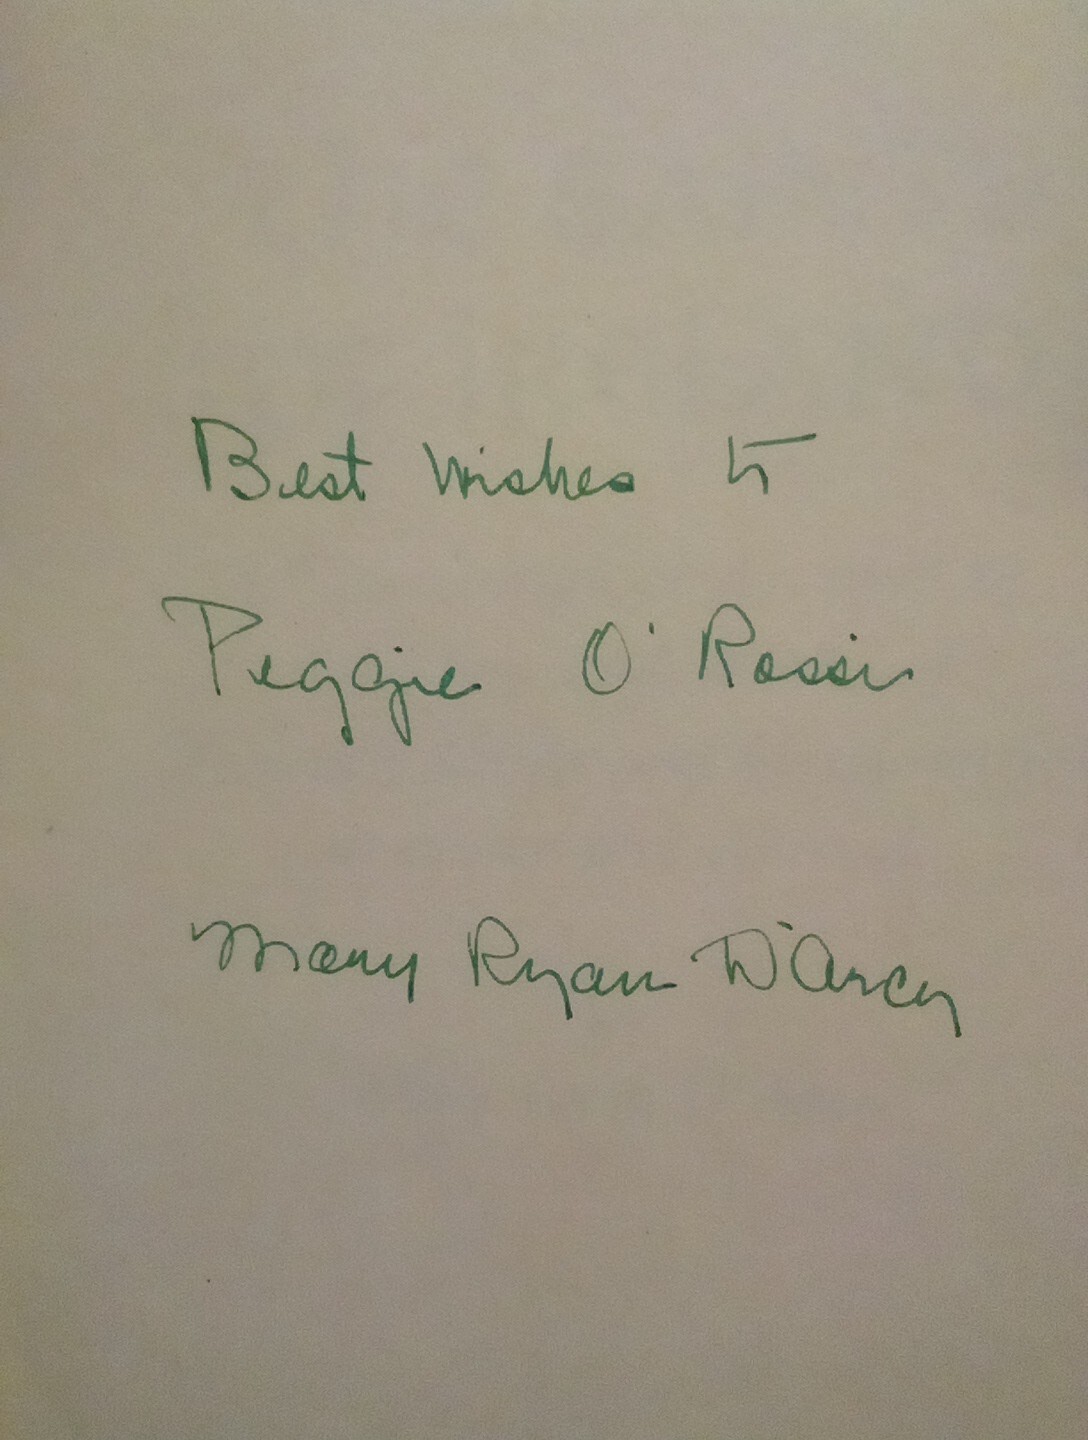 Best Wishes to
Peggie O'Rossi
Mary Ryan D'Arcy